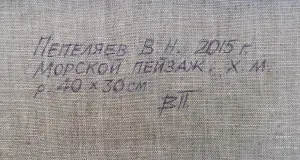 Пепеляев В Н. 2015 г.
Морской пейзаж. Х М.
р 40 х 30 см
ВП